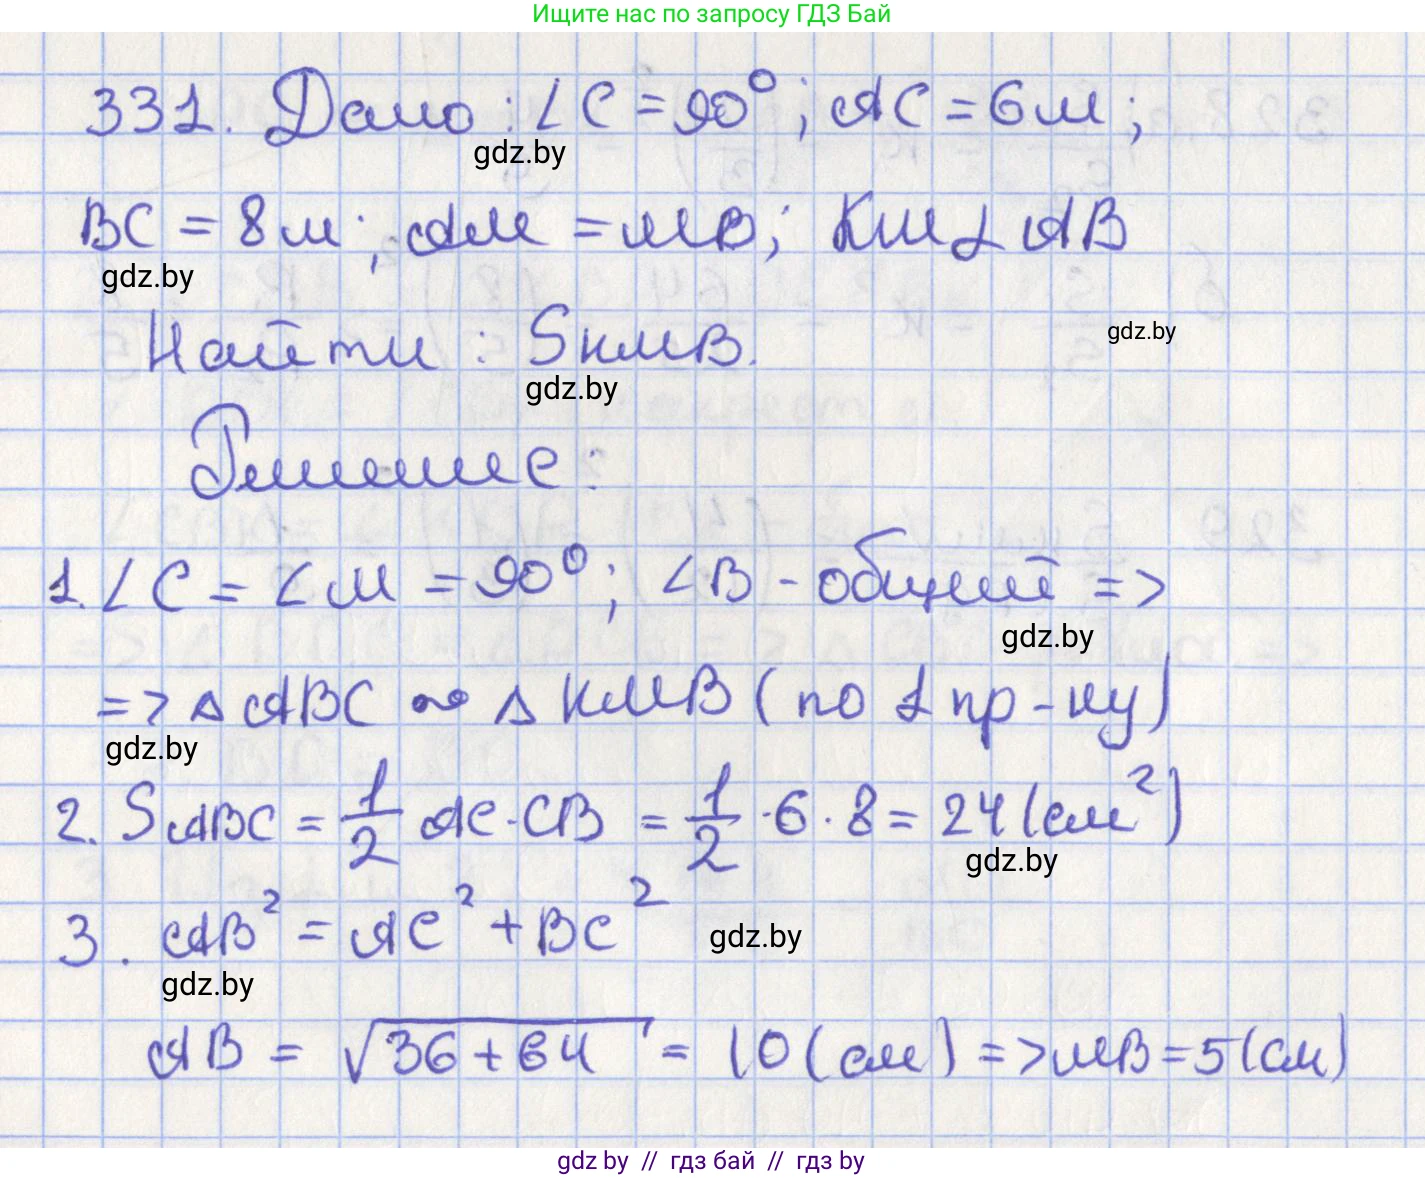 Ищите нас по запросу ГДЗ Бай
331. Дано: ∠C = 90°; AC = 6м;
gdz.by
BC = 8м; AM = MB; KM ⊥ AB
gdz.by
gdz.by
Найти: Sкмв.
gdz.by
Решение:
1. ∠C = ∠M = 90°; ∠B - общий =>
gdz.by
=> △ABC ~ △KMB (по 1 пр-ку)
gdz.by
2. SABC = 1/2 AC · CB = 1/2 · 6 · 8 = 24 (см²)
gdz.by
3. AB² = AC² + BC²
gdz.by
gdz.by
AB = √36 + 64 = 10 (см) => MB = 5 (см)
gdz by // гдз бай // гдз by